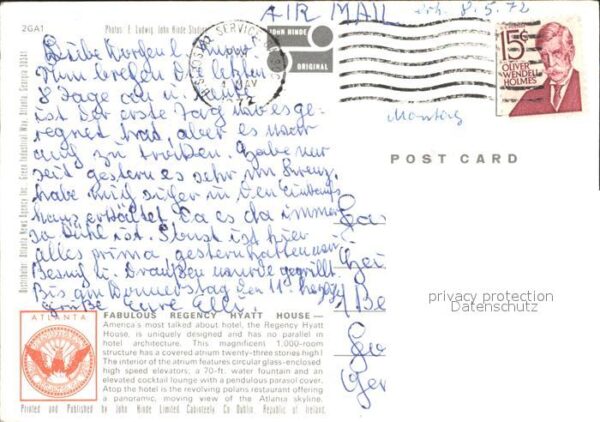 AIR MAIL
erh. 8.5.72
2GA1
Photos: E. Ludwig, John Hinde Studios
JOHN HINDE
ORIGINAL
U.S. POSTAL SERVICE
MAY
1972
15¢
OLIVER
WENDELL
HOLMES
Montag
POST CARD
Distributor: Atlanta News Agency Inc. Green Industrial Way, Atlanta, Georgia 30341
Liebe
Nun brechen die letzten
8 Tage an u. heute
ist der erste Tag wo es ge-
regnet hat, aber es war
auch zu trocken. Habe nur
seit gestern es sehr im Kreuz,
habe mich sicher in den Einkaufs
haus erkältet, da es da immer
so kühl ist. Sonst ist hier
alles prima, gestern hatten wir
Besuch u. draußen wurde gegrillt.
Bis am Donnerstag den 11. herzl.
Grüße Eure
privacy protection
Datenschutz
ATLANTA
FABULOUS REGENCY HYATT HOUSE —
America's most talked about hotel, the Regency Hyatt
House, is uniquely designed and has no parallel in
hotel architecture. This magnificent 1,000-room
structure has a covered atrium twenty-three stories high!
The interior of the atrium features circular glass-enclosed
high speed elevators; a 70-ft. water fountain and an
elevated cocktail lounge with a pendulous parasol cover.
Atop the hotel is the revolving polaris restaurant offering
a panoramic, moving view of the Atlanta skyline.
Printed and Published by John Hinde Limited Cabinteely Co Dublin, Republic of Ireland.